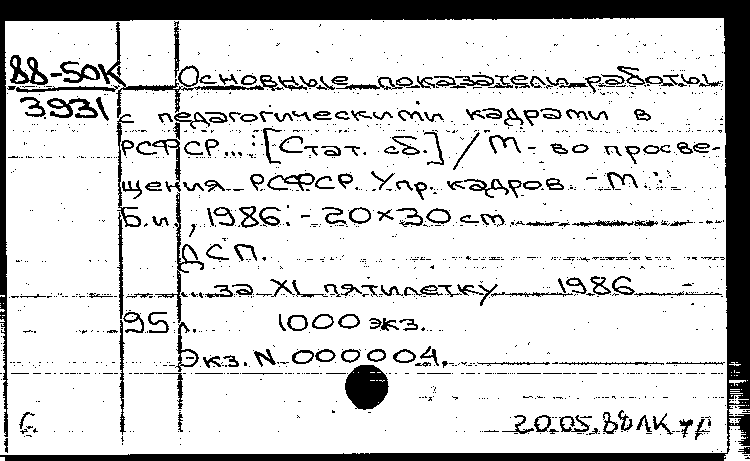 88-50К Основные показатели работы
3931 с педагогическими кадрами в
РСФСР...: [Стат. сб.] / М-во просве-
щения РСФСР. Упр. кадров. - М.:
Б.и., 1986. - 20×30 см
ДСП.
...за XI пятилетку 1986 -
95 л. 1000 экз.
Экз. N 000004.
6 20.05.88 ЛК